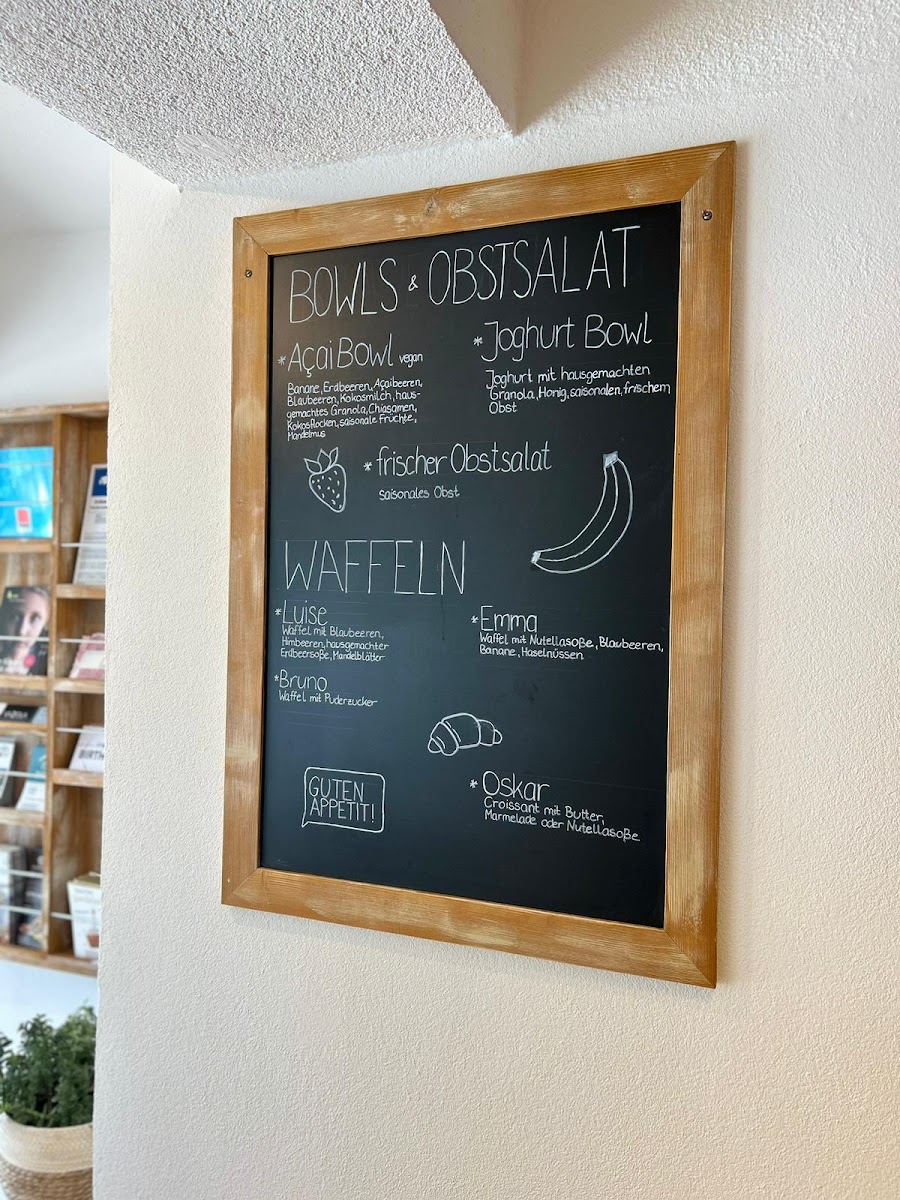 BOWLS & OBSTSALAT
*Açai Bowl vegan
Banane, Erdbeeren, Açaibeeren,
Blaubeeren, Kokosmilch, haus-
gemachtes Granola, Chiasamen,
Kokosflocken, saisonale Früchte,
Mandelmus
*Joghurt Bowl
Joghurt mit hausgemachten
Granola, Honig, saisonalen, frischem
Obst
*frischer Obstsalat
saisonales Obst
WAFFELN
*Luise
Waffel mit Blaubeeren,
Himbeeren, hausgemachter
Erdbeersoße, Mandelblätter
*Emma
Waffel mit Nutellasoße, Blaubeeren,
Banane, Haselnüssen
*Bruno
Waffel mit Puderzucker
*Oskar
Croissant mit Butter,
Marmelade oder Nutellasoße
GUTEN
APPETIT!